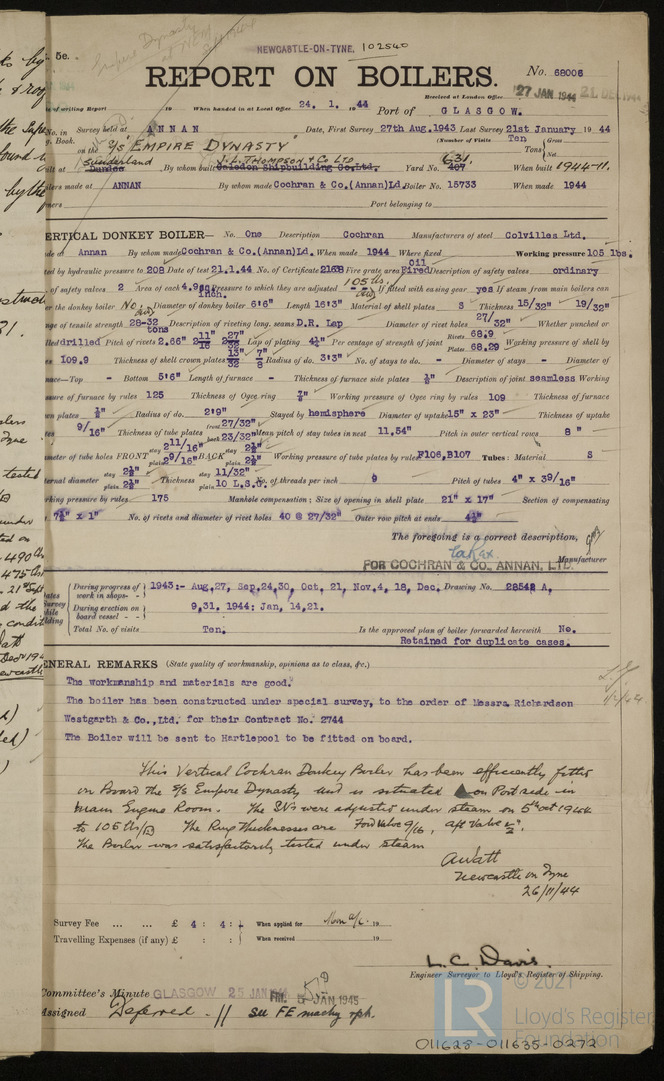 5c.
NEWCASTLE-ON-TYNE, 102540
REPORT ON BOILERS.
No. 68006
Received at London Office 27 JAN 1944
21 DEC 1944
of writing Report 19 When handed in at Local Office 24. 1. 19 44 Port of GLASGOW.
No. in Survey held at ANNAN Date, First Survey 27th Aug. 1943 Last Survey 21st January 19 44
g. Book. (Number of Visits Ten
on the S/S EMPIRE DYNASTY Tons Gross Net
Sunderland J. L. THOMPSON & Co LTD 631.
ilt at Dundee By whom built Caledon Shipbuilding Co. Ltd. Yard No. 407 When built 1944-11.
ilers made at ANNAN By whom made Cochran & Co. (Annan) Ld. Boiler No. 15733 When made 1944
ners Port belonging to
ERTICAL DONKEY BOILER— No. One Description Cochran Manufacturers of steel Colvilles Ltd.
de at Annan By whom made Cochran & Co. (Annan) Ld. When made 1944 Where fixed Working pressure 105 lbs.
ted by hydraulic pressure to 208 Date of test 21.1.44 No. of Certificate 2168 Fire grate area Oil Fired Description of safety valves ordinary
of safety valves 2 Area of each 4.9 sq. inch. Pressure to which they are adjusted 105 lbs. If fitted with easing gear yes If steam from main boilers can
er the donkey boiler No Diameter of donkey boiler 6'6" Length 16'3" Material of shell plates S Thickness 15/32" 19/32"
nge of tensile strength 28-32 tons Description of riveting long. seams D.R. Lap Diameter of rivet holes 27/32" Whether punched or
drilled Pitch of rivets 2.66" 2 11/16" 2 27/32" Lap of plating 4¼" Per centage of strength of joint Rivets 68.9 Plates 68.29 Working pressure of shell by
109.9 Thickness of shell crown plates 13/32 7/8" Radius of do. 3'3" No. of stays to do. - Diameter of stays - Diameter of
nace—Top - Bottom 5'6" Length of furnace - Thickness of furnace side plates ½" Description of joint seamless Working
sure of furnace by rules 125 Thickness of Ogee ring ⅞" Working pressure of Ogee ring by rules 109 Thickness of furnace
wn plates ½" Radius of do. 2'9" Stayed by hemisphere Diameter of uptake 15" x 23" Thickness of uptake
9/16" Thickness of tube plates front 27/32" back 23/32" Mean pitch of stay tubes in nest 11.54" Pitch in outer vertical rows 8"
meter of tube holes FRONT stay 2 11/16" plain 2 9/16" BACK stay 2½" plain 2½" Working pressure of tube plates by rules F106, B107 Tubes: Material S
ernal diameter stay 2½" plain 2½" Thickness stay 11/32" plain 10 L.S.G. No. of threads per inch 9 Pitch of tubes 4" x 3 9/16"
rking pressure by rules 175 Manhole compensation: Size of opening in shell plate 21" x 17" Section of compensating
7½" x 1" No. of rivets and diameter of rivet holes 40 @ 27/32" Outer row pitch at ends 4¼"
The foregoing is a correct description,
FOR COCHRAN & CO., ANNAN, LTD. Manufacturer
Dates of Survey while building
During progress of work in shops - - 1943:- Aug, 27, Sep, 24, 30, Oct, 21, Nov, 4, 18, Dec, Drawing No. 28542 A,
During erection on board vessel - - - 9, 31, 1944: Jan, 14, 21.
Total No. of visits Ten. Is the approved plan of boiler forwarded herewith No.
Retained for duplicate cases.
ENERAL REMARKS (State quality of workmanship, opinions as to class, &c.)
The workmanship and materials are good.
The boiler has been constructed under special survey, to the order of Messrs Richardson
Westgarth & Co., Ltd. for their Contract No. 2744
The Boiler will be sent to Hartlepool to be fitted on board.
This Vertical Cochran Donkey Boiler has been efficiently fitted
on Board the S/S Empire Dynasty and is situated on Port side in
main Engine Room. The SVs were adjusted under steam on 5th Oct 1944
to 105 lbs/□" The Ring thicknesses are Ford Valve 9/16, aft Valve ½".
The Boiler was satisfactorily tested under steam
A Watt
Newcastle on Tyne
26/11/44
Survey Fee ... ... £ 4 : 4 : - When applied for 19
Travelling Expenses (if any) £ : : When received 19
L. C. Davis.
Engineer Surveyor to Lloyd's Register of Shipping.
Committee's Minute GLASGOW 25 JAN 1944 FRI. 5 JAN 1945
Assigned Deferred. // see FE machy rpt.
© 2021
LR
Lloyd's Register
Foundation
011628-011635-0272